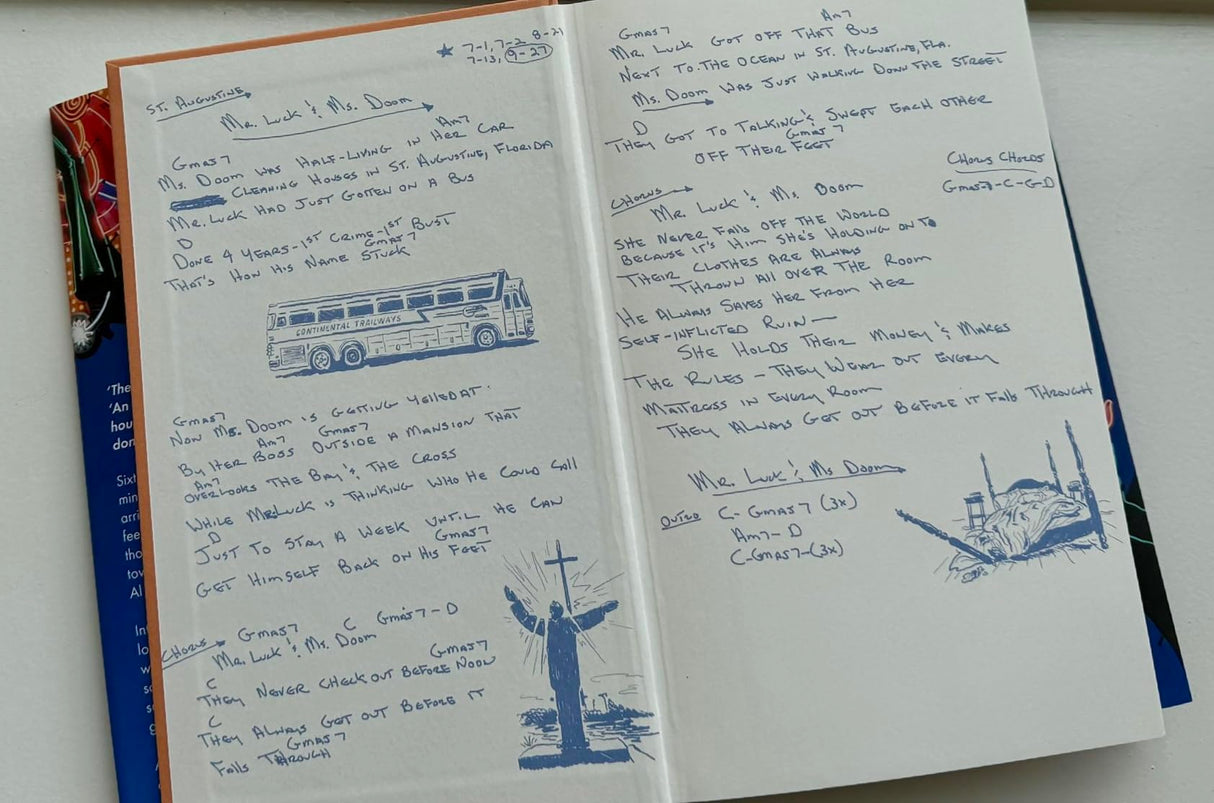 ★ 7-1, 7-2, 8-21
7-13, 9-27
ST. AUGUSTINE
MR. LUCK & MS. DOOM
Gmaj7 Am7
MS. DOOM WAS HALF-LIVING IN HER CAR
CLEANING HOUSES IN ST. AUGUSTINE, FLORIDA
MR. LUCK HAD JUST GOTTEN ON A BUS
D
DONE 4 YEARS-1ST CRIME-1ST BUST
Gmaj7
THAT'S HOW HIS NAME STUCK
CONTINENTAL TRAILWAYS
Gmaj7
NOW MS. DOOM IS GETTING YELLED AT
Am7 Gmaj7
BY HER BOSS OUTSIDE A MANSION THAT
Am7
OVERLOOKS THE BAY & THE CROSS
WHILE MR LUCK IS THINKING WHO HE COULD CALL
D
JUST TO STAY A WEEK UNTIL HE CAN
Gmaj7
GET HIMSELF BACK ON HIS FEET
CHORUS Gmaj7 C Gmaj7-D
MR. LUCK & MS. DOOM
C Gmaj7
THEY NEVER CHECK OUT BEFORE NOON
C
THEY ALWAYS GET OUT BEFORE IT
Gmaj7
FALLS THROUGH
Gmaj7 Am7
MR. LUCK GOT OFF THAT BUS
NEXT TO THE OCEAN IN ST. AUGUSTINE, FLA.
MS. DOOM WAS JUST WALKING DOWN THE STREET
D
THEY GOT TO TALKING & SWEPT EACH OTHER
Gmaj7
OFF THEIR FEET
CHORUS CHORDS
Gmaj7-C-G-D
CHORUS
MR. LUCK & MS. DOOM
SHE NEVER FALLS OFF THE WORLD
BECAUSE IT'S HIM SHE'S HOLDING ON TO
THEIR CLOTHES ARE ALWAYS
THROWN ALL OVER THE ROOM
HE ALWAYS SAVES HER FROM HER
SELF-INFLICTED RUIN—
SHE HOLDS THEIR MONEY & MAKES
THE RULES - THEY WEAR OUT EVERY
MATTRESS IN EVERY ROOM
THEY ALWAYS GET OUT BEFORE IT FALLS THROUGH
MR. LUCK & MS DOOM
OUTRO C-Gmaj7 (3x)
Am7-D
C-Gmaj7-(3x)
'The
'An
hou
don
Sixt
min
arri
fee
tho
tov
Al
In
lo
w
sc
s
g